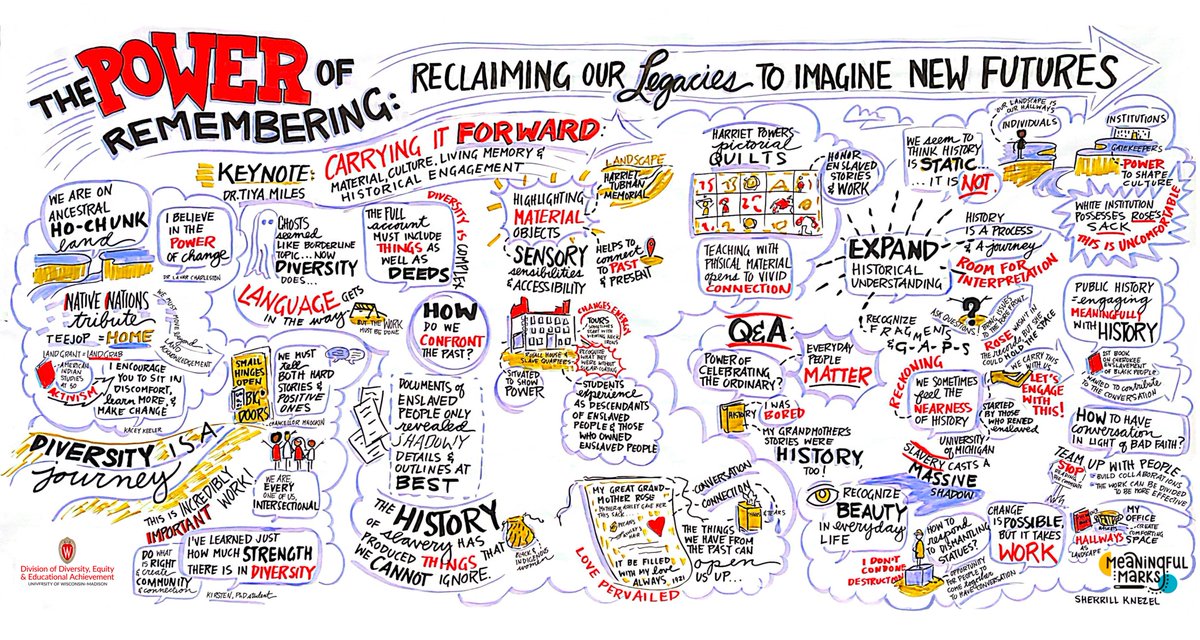 THE POWER OF
REMEMBERING:
RECLAIMING OUR Legacies TO IMAGINE NEW FUTURES
KEYNOTE:
DR. TIYA MILES
CARRYING IT FORWARD:
MATERIAL, CULTURE, LIVING MEMORY &
HISTORICAL ENGAGEMENT
WE ARE ON
ANCESTRAL
HO-CHUNK
land
I BELIEVE
IN THE
POWER
OF change
DR. LAVAR CHARLESTON
NATIVE NATIONS
tribute
TEEJOP = HOME
WE MUST MOVE BEYOND
LAND
ACKNOWLEDGEMENT
LAND GRANT = LAND GRAB
AMERICAN
INDIAN
STUDIES
AT 50
ACTIVISM
I ENCOURAGE
YOU TO SIT IN
DISCOMFORT,
learn MORE, &
MAKE CHANGE
KACEY KEELER
SMALL
HINGES
OPEN
BIG
DOORS
WE MUST
tell
BOTH HARD
STORIES &
POSITIVE
ONES
CHANCELLOR MNOOKIN
DIVERSITY IS A
journey
THIS IS INCREDIBLY
IMPORTANT WORK!
WE ARE,
EVERY
ONE OF US,
INTERSECTIONAL
DO WHAT
IS RIGHT &
create
COMMUNITY
& connection
I'VE LEARNED JUST
HOW MUCH STRENGTH
THERE IS IN DIVERSITY
KIRSTEN, PhD student
Division of Diversity, Equity
& Educational Achievement
UNIVERSITY OF WISCONSIN-MADISON
GHOSTS
seemed
LIKE BORDERLINE
TOPIC... NOW
DIVERSITY
DOES...
THE FULL
account
MUST INCLUDE
THINGS AS
WELL AS
DEEDS
DIVERSITY IS COMPLEX
LANGUAGE GETS
IN THE way
BUT THE WORK
MUST BE DONE
HOW
DO WE
CONFRONT
THE PAST?
DOCUMENTS OF
ENSLAVED
PEOPLE ONLY
revealed
SHADOWY
DETAILS &
OUTLINES AT
BEST
THE HISTORY
OF slavery HAS
PRODUCED THINGS THAT
WE CANNOT IGNORE.
BLACK &
INDIGENOUS
women
HIGHLIGHTING
MATERIAL
OBJECTS
LANDSCAPE
HARRIET
TUBMAN
MEMORIAL
SENSORY
sensibilities
& ACCESSIBILITY
HELPS TO
connect
TO PAST
& PRESENT
SLAVE QUARTERS
SITUATED
TO SHOW
POWER
CHANGES ENERGY
TOURS
STUDENTS
experience
AS DESCENDANTS
OF ENSLAVED
PEOPLE & THOSE
WHO OWNED
ENSLAVED PEOPLE
MY GREAT GRAND-
MOTHER ROSE
MOTHER OF ASHLEY GAVE HER
THIS SACK...
IT BE FILLED
WITH MY LOVE
ALWAYS, 1921
LOVE PREVAILED
CONVERSATION
CONNECTION
THE THINGS
WE HAVE FROM
THE PAST CAN
open
US UP...
HARRIET POWERS
pictorial
QUILTS
HONOR
ENSLAVED
STORIES
& WORK
TEACHING WITH
PHYSICAL MATERIAL
opens TO VIVID
CONNECTION
Q&A
POWER OF
CELEBRATING
THE ORDINARY?
EVERYDAY
PEOPLE
MATTER
HISTORY
I WAS
BORED
MY GRANDMOTHER'S
STORIES WERE
HISTORY,
TOO!
RECOGNIZE
BEAUTY
IN everyday
LIFE
I DON'T
CONDONE
DESTRUCTION
HOW TO
respond
TO DISMANTLING
STATUES?
OPPORTUNITY
FOR PEOPLE TO
COME together
TO HAVE CONVERSATION
WE SEEM TO
THINK HISTORY
IS STATIC
...IT IS NOT
OUR LANDSCAPE IS
OUR HALLWAYS
INDIVIDUALS
INSTITUTIONS
GATEKEEPERS
POWER
TO SHAPE
CULTURE
WHITE INSTITUTION
POSSESSES ROSE'S
SACK
THIS IS UNCOMFORTABLE
EXPAND
HISTORICAL
UNDERSTANDING
HISTORY
IS A PROCESS
& A journey
ROOM FOR
INTERPRETATION
RECOGNIZE
FRAGMENTS
& G-A-P-S
ASK QUESTIONS!
RECKONING
WE SOMETIMES
feel THE
NEARNESS
OF HISTORY
WE CARRY THIS
WITH US
LET'S
ENGAGE
WITH THIS!
STARTED
BY THOSE
WHO RENTED
enslaved
UNIVERSITY OF
MICHIGAN
SLAVERY CASTS A
MASSIVE
SHADOW
CHANGE
IS POSSIBLE,
BUT IT TAKES
WORK
PUBLIC HISTORY
= engaging
MEANINGFULLY
WITH HISTORY
1ST BOOK
ON CHEROKEE
ENSLAVEMENT
OF BLACK PEOPLE
WANTED TO CONTRIBUTE
TO THE CONVERSATION
HOW TO HAVE
conversation
IN LIGHT OF BAD FAITH?
TEAM UP WITH PEOPLE
BUILD COLLABORATIONS
THE WORK CAN BE DIVIDED
TO BE MORE EFFECTIVE
STOP
READING
THE COMMENTS
HALLWAYS
AS
LANDSCAPE
MY
OFFICE
CREATE
COMFORTING
SPACE
MEANINGFUL
MARKS
SHERRILL KNEZEL